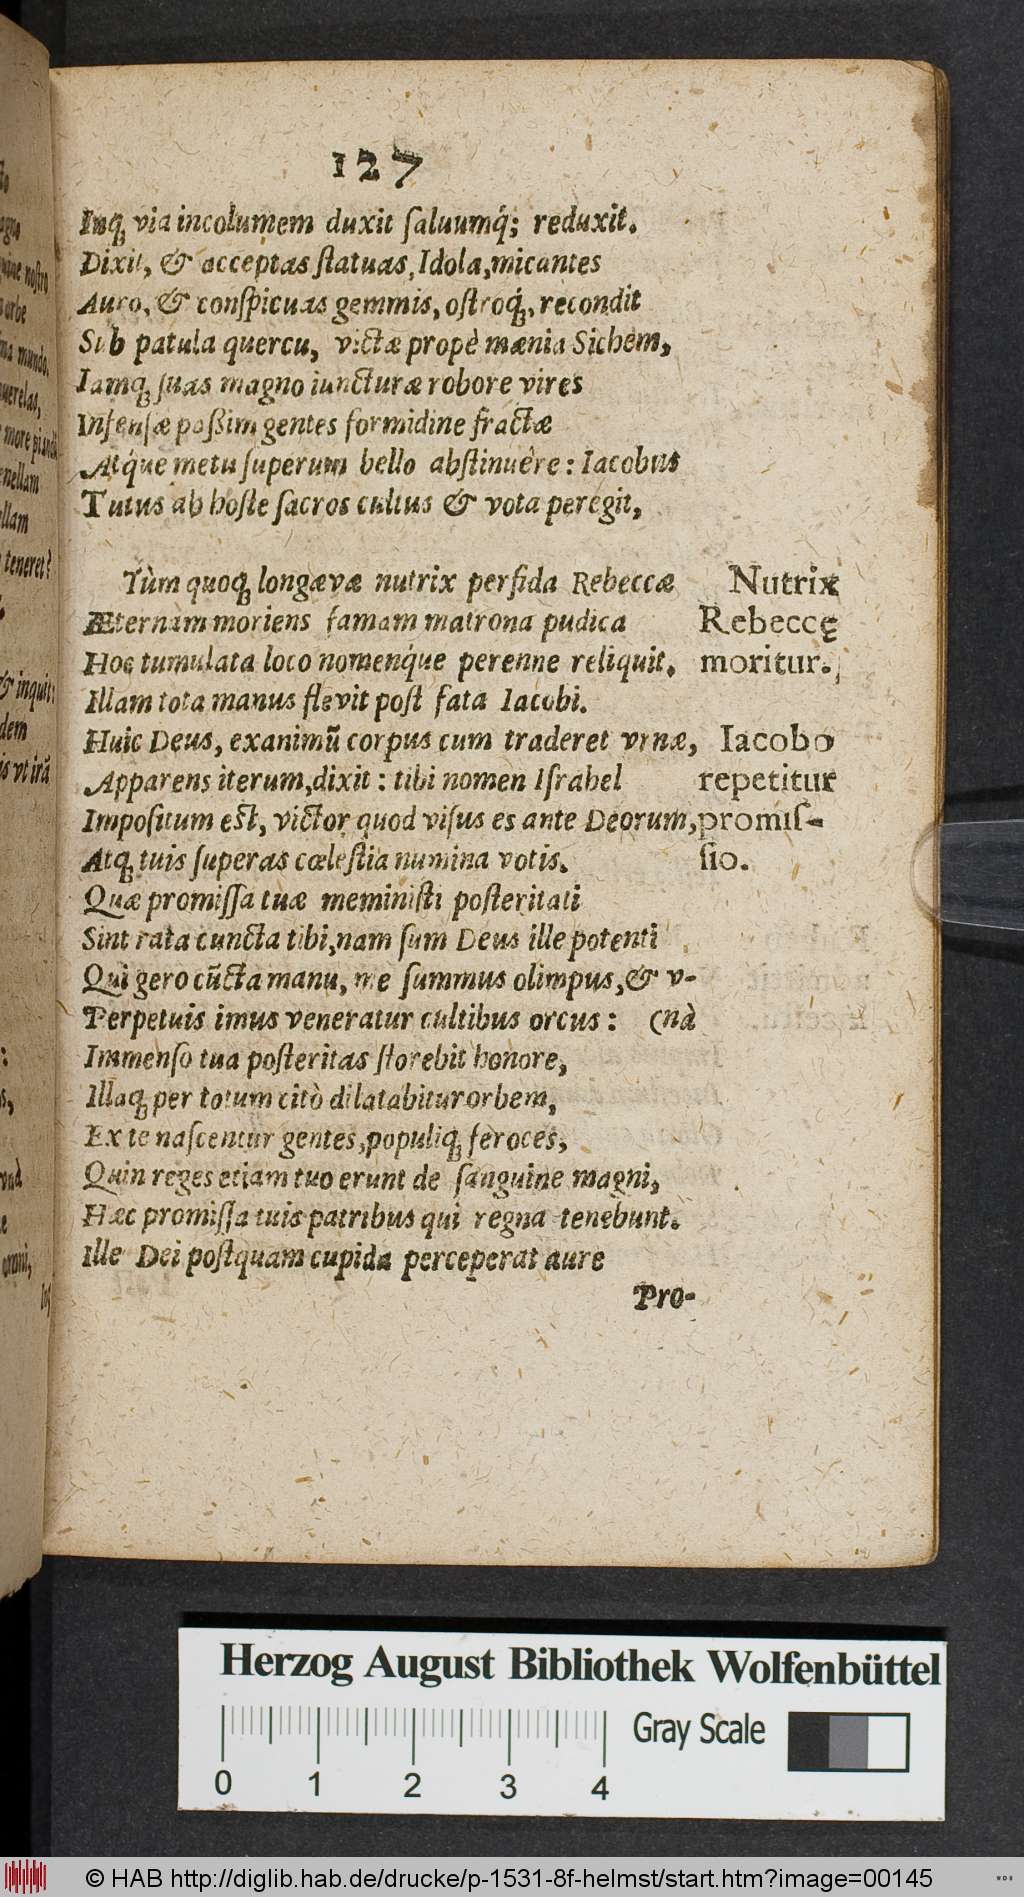 127
Inq; via incolumem duxit ſaluumq́; reduxit.
Dixit, & acceptas ſtatuas, Idola, micantes
Auro, & conſpicuas gemmis, oſtroq́;, recondit
Sub patula quercu, victæ propè mænia Sichem,
Iamq; ſuas magno iuncturæ robore vires
Infenſæ paßim gentes formidine fractæ
Atq́ue metu ſuperum bello abſtinuère: Iacobus
Tutus ab hoſte ſacros cultus & vota peregit,
Tùm quoq; longævæ nutrix perfida Rebeccæ
Æternam moriens famam matrona pudica
Hoc tumulata loco nomenq́ue perenne reliquit.
Illam tota manus flevit poſt fata Iacobi.
Nutrix
Rebeccę
moritur.
Huic Deus, exanimũ corpus cum traderet vrnæ,
Apparens iterum, dixit: tibi nomen Iſrahel
Impoſitum eſt, victor quod viſus es ante Deorum,
Atq; tuis ſuperas cœleſtia numina votis.
Iacobo
repetitur
promiſ-
ſio.
Quæ promiſſa tuæ meminiſti poſteritati
Sint rata cuncta tibi, nam ſum Deus ille potenti
Qui gero cũcta manu, me ſummus olimpus, & v-
Perpetuis imus veneratur cultibus orcus: (nà
Immenſo tua poſteritas florebit honore,
Illaq; per totum citò dilatabitur orbem,
Ex te naſcentur gentes, populiq; feroces,
Quin reges etiam tuo erunt de ſanguine magni,
Hæc promiſſa tuis patribus qui regna tenebunt.
Ille Dei poſtquam cupida perceperat aure
Pro-
Herzog August Bibliothek Wolfenbüttel
Gray Scale
0 1 2 3 4
© HAB http://diglib.hab.de/drucke/p-1531-8f-helmst/start.htm?image=00145